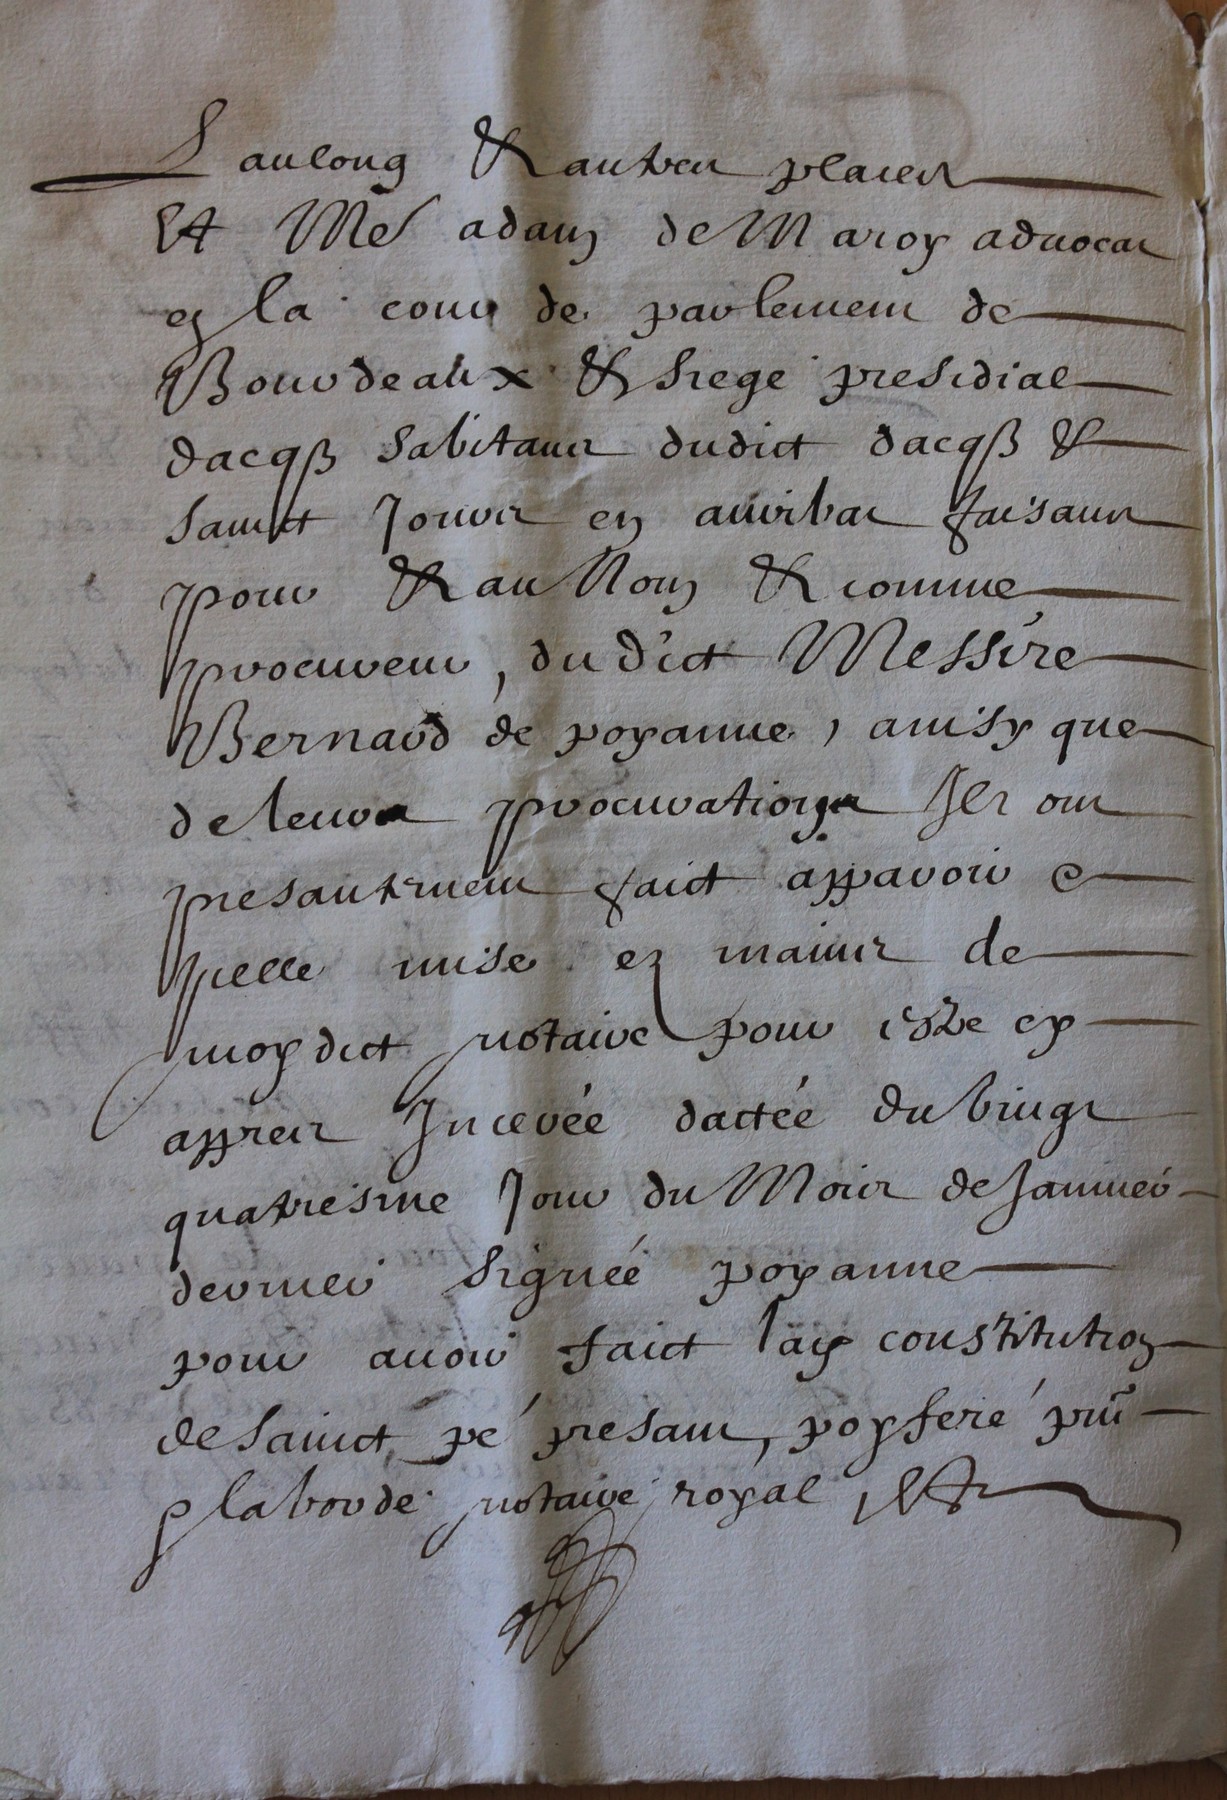 Laulong & autres places
Et Me adam de Maroy advocat
en la cour de parlement de
Bourdeaux & siege presidial
dacqs habitans dudict dacqs &
sainct Jours en auribat faisans
pour & au Nom & comme
procureur, dudict Messire
Bernard de poyanne, ainsy que
de leurs procurations Ils ont
presantement faict apparoir e
icelle mise ez mains de
moydict notaire pour estre cy
appres Inceree dactée du vingt
quatriesme Jour du Mois de Januier
dernier signéé poyanne
pour auoir faict lay constitution
de sainct pé presant, poyferé pnt
p laborde notaire royal Et